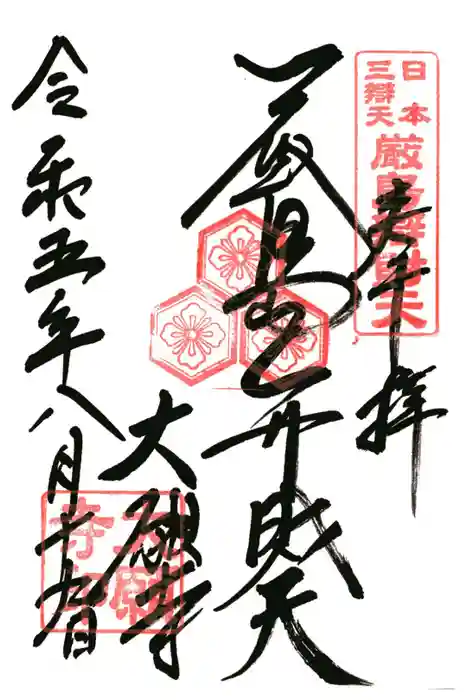 奉拝
日本
三辯天
厳島辯財天
厳島弁財天
大願寺
令和五年八月
大願
寺印